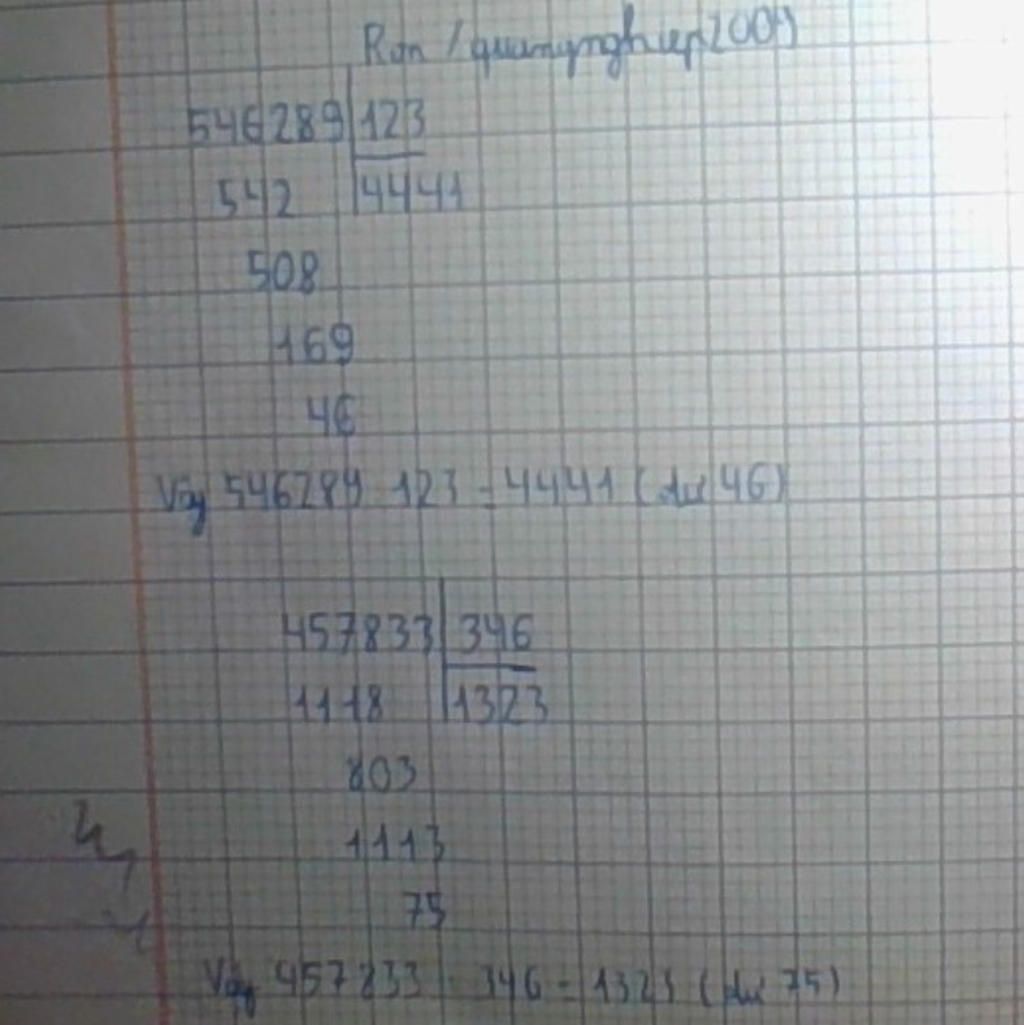 Ron / quangnghiep2009
546289 123
542 4441
508
169
46
Vậy 546289 : 123 = 4441 (dư 46)
457833 346
1118 1323
803
1113
75
Vậy 457833 : 346 = 1323 (dư 75)